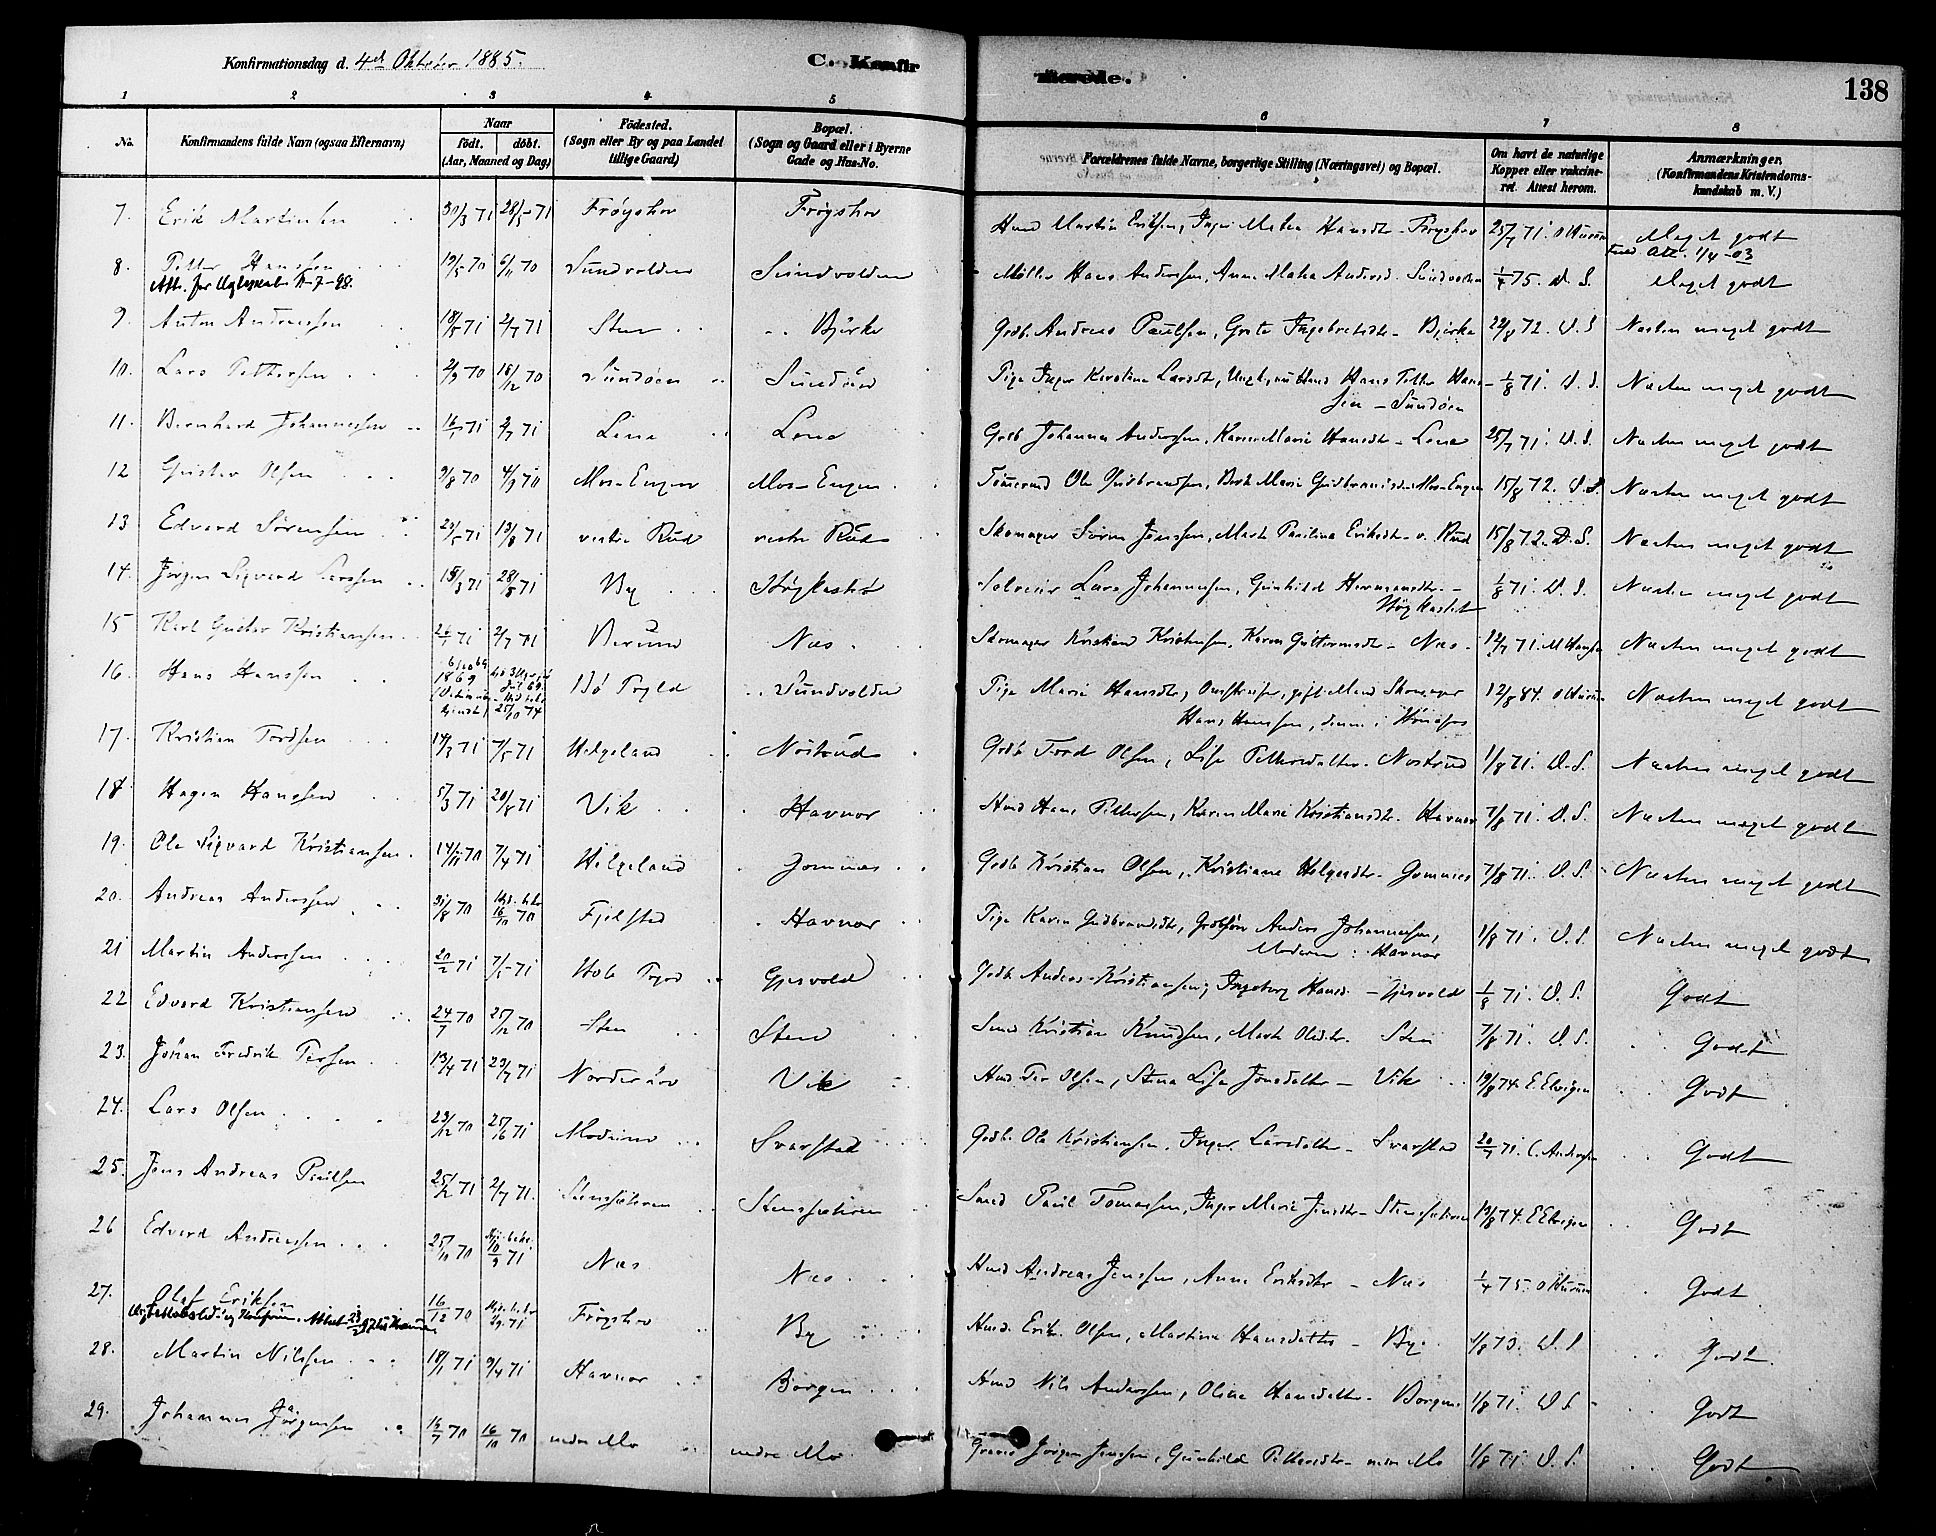 Konfirmationsdag d. 4de Oktober 1885.
C. Konfirmerede.
138
1 2 3 4 5 6 7 8
No.
Konfirmandens fulde Navn (ogsaa Efternavn)
Naar
födt. döbt.
(Aar, Maaned og Dag)
Födested.
(Sogn eller By og paa Landet
tillige Gaard)
Bopæl.
(Sogn og Gaard eller i Byerne
Gade og Hus-No.
Forældrenes fulde Navne, borgerlige Stilling (Næringsvei) og Bopæl.
Om havt de naturlige
Kopper eller vaksine-
ret. Attest herom.
Anmærkninger.
(Konfirmandens Kristendoms-
kundskab m. V.)
7. Erik Martinsen 30/3 71 28/5 71 Frøyshov Frøyshov Martin Eriksen, Inger Mathea Hansdt - Frøyshov 25/7 71. Meget godt
8. Petter Hanssen 19/5 70 6/11 70 Sundvolden Sundvolden Møller Hans Anderssen, Anne Mathea Andersd. Sundvolden 1/4 75. D. S. Meget godt
Att. 1/4-03
9. Anton Andreassen 18/5 71 2/7 71 Sten Bjørke Grdb. Andreas Paulsen, Grete Ingebretsdt - Bjørke 29/8 72. D. S Næsten meget godt
10. Lars Pettersen 2/9 70 18/12 70 Sundøen Sundøen Pige Inger Karoline Larsdt, Hans Petter Han-
sen - Sundøen 1/8 71. D. S. Næsten meget godt
11. Bernhard Johannessen 16/1 71 2/7 71 Lene Lene Grdb Johannes Anderssen, Karen Marie Hansdt - Lene 25/7 71. D. S. Næsten meget godt
12 Gustav Olsen 9/8 70 4/9 70 Mos-Engen Mos-Engen Tømmermd Ole Gudbrandsen, Berthe Marie Gudbrandsdt. Mos-Engen 15/8 72. D. S. Næsten meget godt
13 Edvard Sørenssen 23/5 71 13/8 71 vestre Rud vestre Rud Skomager Søren Jenssen, Marte Pauline Eriksdt - v. Rud 15/8 72. D. S. Næsten meget godt
14. Jørgen Sigvard Larssen 15/3 71 28/5 71 By Selveier Lars Johannessen, Gunhild Hermansdtr -
Høgkastet 1/8 71. D. S. Næsten meget godt
15 Karl Gustav Kristiansen 26/1 71 2/7 71 Bærum Næs Skomager Kristian Kristensen, Karen Guttormsdt - Næs 12/7 71. M Hansen Næsten meget godt
16. Hans Hanssen 1869 25/10 74 Sundvolden Pige Marie Hansdt, gift Mand Skomager
Hans Hanssen, denne i Hønefos 12/8 84. Næsten meget godt
17. Kristian Tordsen 14/3 71 7/5 71 Helgeland Nøstrud Grdb Tord Olsen, Lise Pettersdatter - Nøstrud 1/8 71. D. S. Næsten meget godt
18 Hagen Hanssen 5/3 71 20/8 71 Vik Havnor Hmd Hans Pettersen, Karen Marie Kristiansdt. Havnor 7/8 71. D. S. Næsten meget godt
19. Ole Sigvard Kristiansen. 14/11 70 7/4 71 Helgeland Gomnes Grdb Kristian Olsen, Kristiane Helgesdtr - Gomnes 7/8 71. D. S. Næsten meget godt
20. Andreas Anderssen 31/8 70 16/10 70 Fjelstad Havnor Pige Karen Gudbrandsdt, Grdbsøn Anders Johannessen,
Moderen: Havnor 1/8 71. D. S. Næsten meget godt
21 Martin Anderssen 20/2 71 7/5 71 Hole Gjesvold Grdb Anders Kristiansen, Ingeborg Hansd. - Gjesvold 1/8 71. D. S. Godt
22 Edvard Kristiansen 24/7 70 25/12 70 Sten Sten Smed Kristian Knudsen, Marte Olsdtr. Sten 7/8 71. D. S. Godt
23. Johan Fredrik Torsen 13/4 71 23/7 71 Norderhov Vik Hmd Tor Olsen, Stina Lise Jonsdatter - Vik 19/8 74. E. Elvigen Godt
24. Lars Olsen 23/12 70 71 Modum Svarstad Grdb. Ole Kristiansen, Inger Larsdatter - Svarstad 20/7 71. C. Andersen Godt
25. Jens Andreas Paulsen 25/2 71 2/7 71. Stenssætren Stenssætren Smed Paul Tomassen, Inger Marie Jensdt - Stenssætren 19/8 74. E Elvigen Godt
26 Edvard Andreassen 25/10 70 10/9 71 Næs Næs Hmd Andreas Jenssen, Anne Eriksdtr - Næs 1/4 75. Godt
27. Olaf Eriksen 16/12 70 71 Frøyshov By Hmd. Erik Olsen, Martine Hansdatter - By. 1/8 73. D. S Godt.
28. Martin Nilssen 18/1 71 9/4 71 Havnor Borgen Hmd Nils Anderssen, Oline Hansdatter - Borgen 1/8 71. D S Godt
29. Johannes Jørgensen 14/7 70 16/10 70 nedre Mo nedre Mo Jørgen Jenssen, Gunhild Pettersdtr - nedre Mo 1/8 71 D. S. Godt.